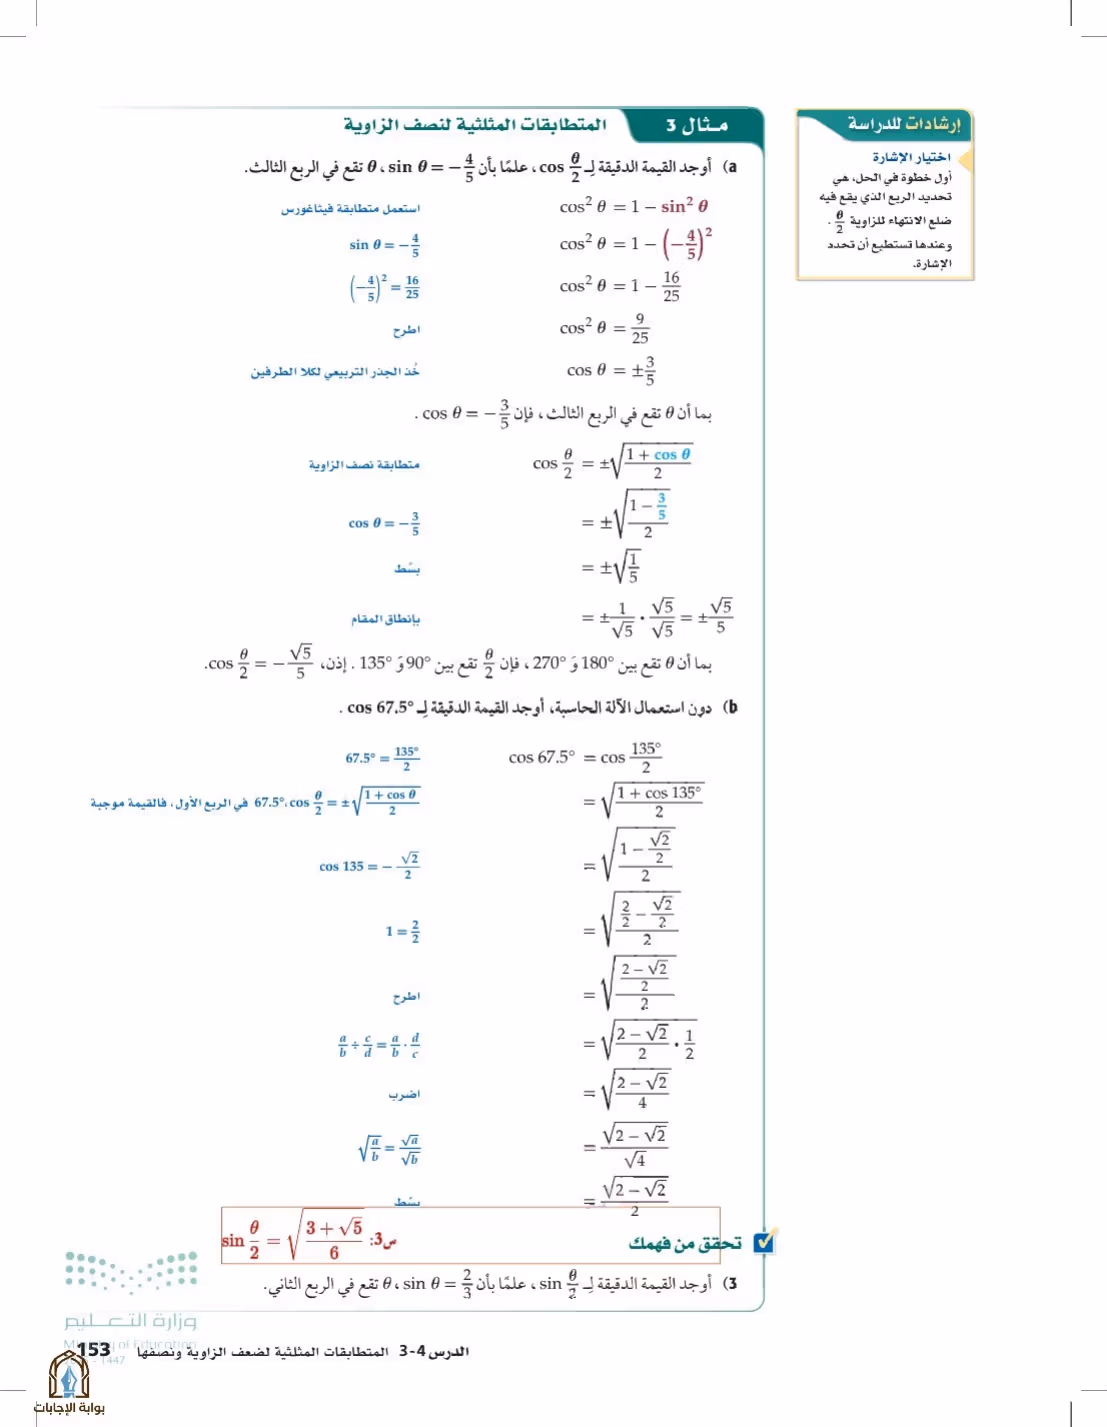 إرشادات للدراسة
اختيار الإشارة
أول خطوة في الحل، هي
تحديد الربع الذي يقع فيه
ضلع الانتهاء للزاوية θ/2 .
وعندها تستطيع أن تحدد
الإشارة.
مثال 3 المتطابقات المثلثية لنصف الزاوية
a) أوجد القيمة الدقيقة لـ cos θ/2 ، علمًا بأن sin θ = −4/5 ، θ تقع في الربع الثالث.
cos² θ = 1 − sin² θ استعمل متطابقة فيثاغورس
cos² θ = 1 − (−4/5)² sin θ = −4/5
cos² θ = 1 − 16/25 (−4/5)² = 16/25
cos² θ = 9/25 اطرح
cos θ = ±3/5 خُذ الجذر التربيعي لكلا الطرفين
بما أن θ تقع في الربع الثالث ، فإن cos θ = −3/5 .
cos θ/2 = ±√((1 + cos θ)/2) متطابقة نصف الزاوية
= ±√((1 − 3/5)/2) cos θ = −3/5
= ±√(1/5) بسّط
= ±1/√5 · √5/√5 = ±√5/5 بإنطاق المقام
بما أن θ تقع بين 180° وَ 270° ، فإن θ/2 تقع بين 90° وَ 135° . إذن، cos θ/2 = −√5/5.
b) دون استعمال الآلة الحاسبة، أوجد القيمة الدقيقة لـ cos 67.5° .
cos 67.5° = cos 135°/2 67.5° = 135°/2
= √((1 + cos 135°)/2) cos θ/2 = ±√((1 + cos θ)/2) ،67.5° في الربع الأول، فالقيمة موجبة
= √((1 − √2/2)/2) cos 135 = − √2/2
= √((2/2 − √2/2)/2) 1 = 2/2
= √(((2 − √2)/2)/2) اطرح
= √((2 − √2)/2 · 1/2) a/b ÷ c/d = a/b · d/c
= √((2 − √2)/4) اضرب
= √(2 − √2)/√4 √(a/b) = √a/√b
= √(2 − √2)/2 بسّط
تحقق من فهمك
س3: sin θ/2 = √((3 + √5)/6)
3) أوجد القيمة الدقيقة لـ sin θ/2 ، علمًا بأن sin θ = 2/3 ، θ تقع في الربع الثاني.
وزارة التعليم
Ministry of Education
- 1447
الدرس 4-3 المتطابقات المثلثية لضعف الزاوية ونصفها 153
بوابة الإجابات